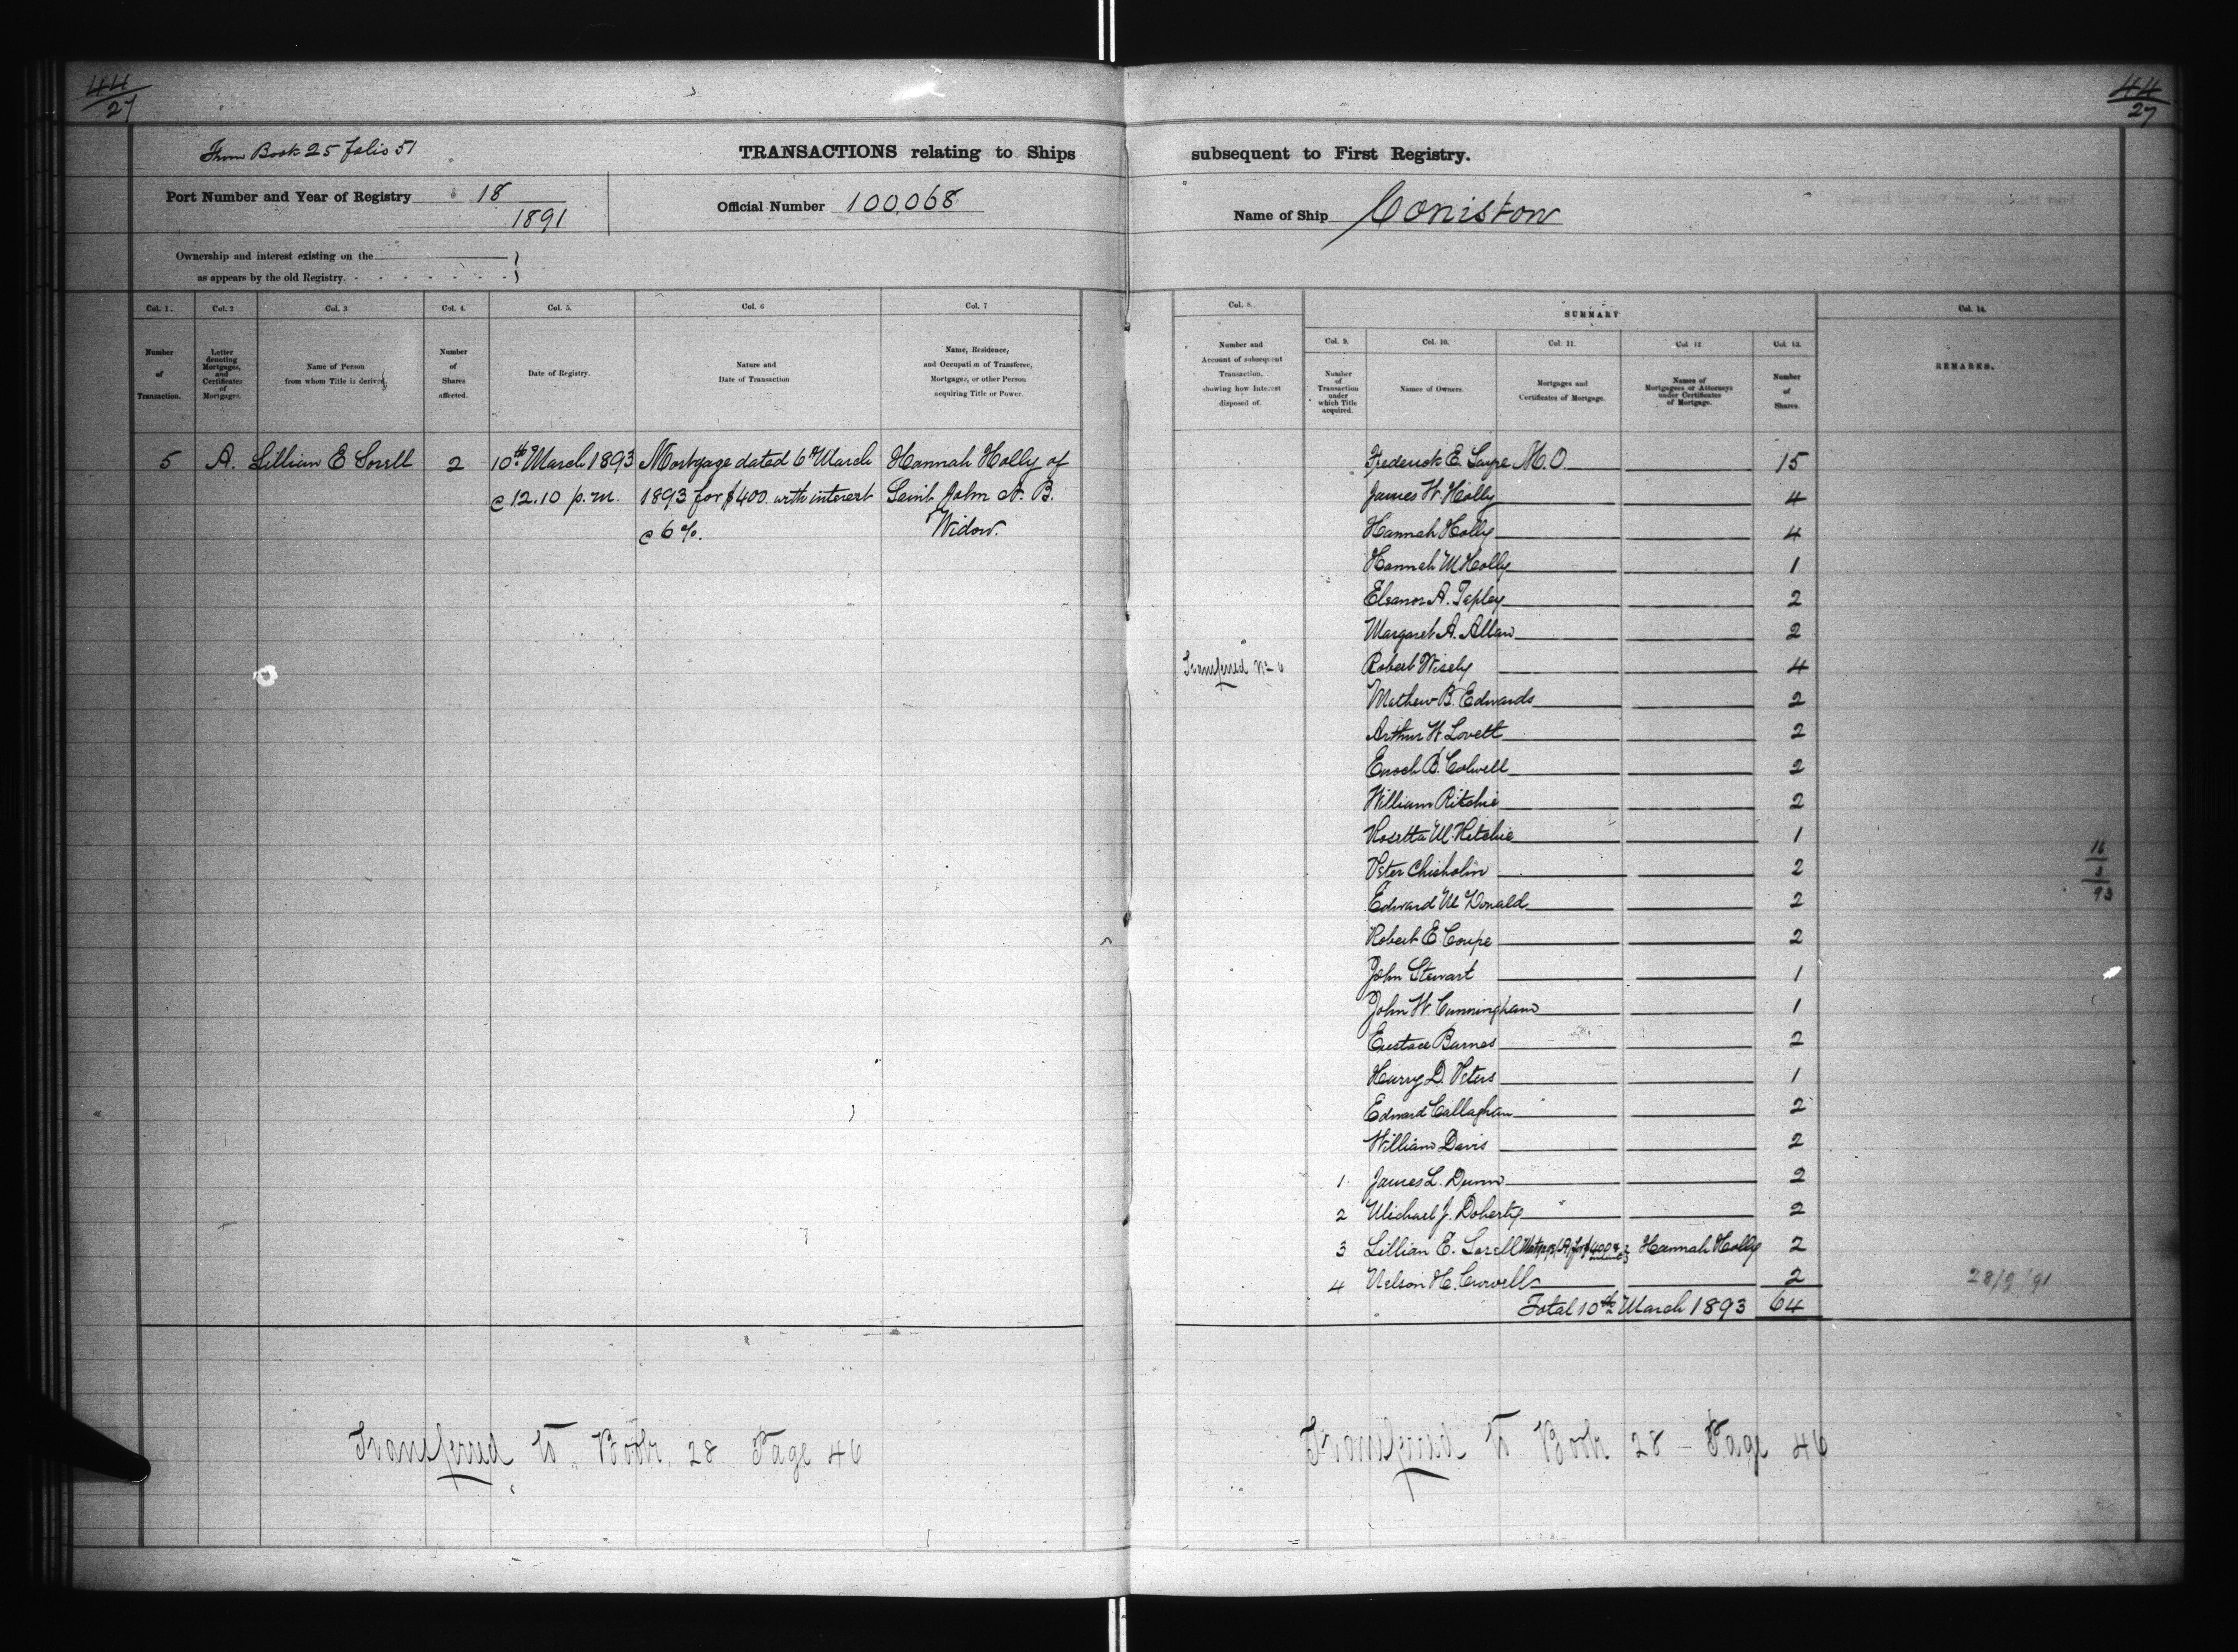 44
27
44
27
From Book 25 folio 51
TRANSACTIONS relating to Ships subsequent to First Registry.
Port Number and Year of Registry 18
1891
Official Number 100,068
Name of Ship Coniston
Ownership and interest existing on the
as appears by the old Registry.
Col. 1.
Number
of
Transaction.
Col. 2
Letter
denoting
Mortgages,
and
Certificates
of
Mortgage.
Col. 3
Name of Person
from whom Title is derived
Col. 4.
Number
of
Shares
affected.
Col. 5.
Date of Registry.
Col. 6
Nature and
Date of Transaction
Col. 7
Name, Residence,
and Occupation of Transferee,
Mortgagee, or other Person
acquiring Title or Power.
5 A. Lillian E Sorell 2 10th March 1893 Mortgage dated 6th March Hannah Holly of
@ 12.10 p.m. 1893 for $400 with interest Saint John N. B.
@ 6%. Widow.
Transferred to Book 28 Page 46
Col. 8.
Number and
Account of subsequent
Transaction,
showing how Interest
disposed of.
SUMMARY
Col. 9.
Number
of
Transaction
under
which Title
acquired.
Col. 10.
Names of Owners.
Col. 11.
Mortgages and
Certificates of Mortgage.
Col. 12
Names of
Mortgagees or Attorneys
under Certificates
of Mortgage.
Col. 13.
Number
of
Shares.
Col. 14.
REMARKS.
Frederick E. Sayre M.O. 15
James W. Holly 4
Hannah Holly 4
Hannah M Holly 1
Eleanor A. Tapley 2
Margaret A. Allan 2
Transferred No 6 Robert Wisely 4
Mathew B. Edwards 2
Arthur W Lovett 2
Enoch B. Colwell 2
William Ritchie 2
Rosetta M. Ritchie 1
Peter Chisholm 2
16
3
93
Edward McDonald 2
Robert E Coupe 2
John Stewart 1
John W. Cunningham 1
Eustace Barnes 2
Harry D. Peters 1
Edward Callaghan 2
William Davis 2
1 James L. Dunn 2
2 Michael J. Doherty 2
3 Lillian E. Sorell Mortgage (A) for $400 & Hannah Holly 2
4 Nelson H. 2
28/2/91
Total 10th March 1893 64
Transferred to Book 28 - Page 46